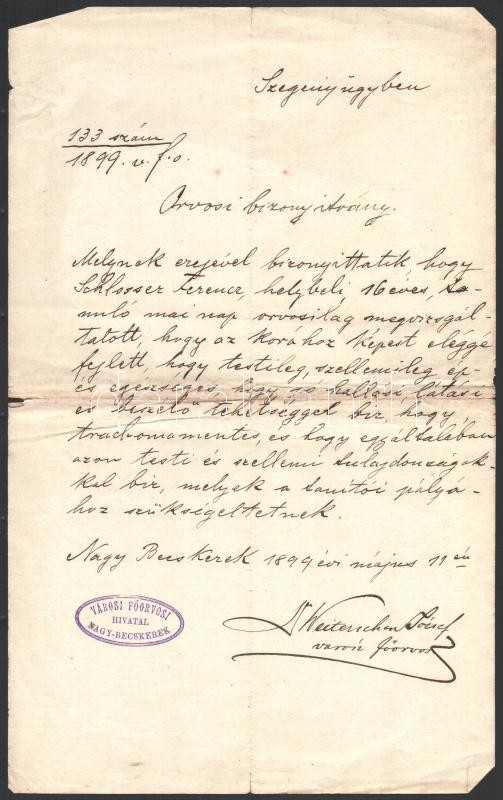 Szegényügyben
133 szám
1899. v. f. o.
Orvosi bizonyitvány.
Melynek erejével bizonyittatik, hogy
Schlosser Ferencz, helybeli 16 éves, ta-
nuló mai nap orvosilag megvizsgál-
tatott, hogy az korához képest eléggé
fejlett, hogy testileg, szellemileg ép-
és egészséges, hogy jó hallási, látási
és beszélő tehetséggel bir hogy,
trachomamentes, és hogy egyáltalában
azon testi és szellemi tulajdonságok-
kal bir, melyek a tanitói pályá-
hoz szükségeltetnek.
Nagy Becskerek 1899 évi május 19 én
Dr Weiterschan József
városi főorvos
VÁROSI FŐORVOSI
HIVATAL
NAGY-BECSKEREK